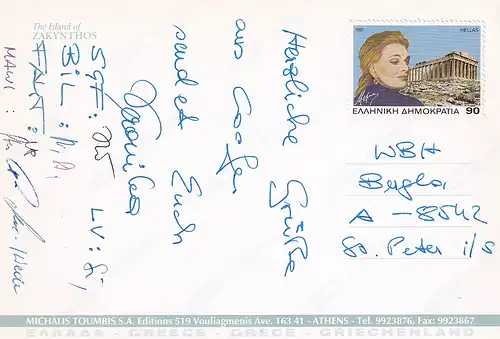 The Island of
ZAKYNTHOS
1995
HELLAS
ΕΛΛΗΝΙΚΗ ΔΗΜΟΚΡΑΤΙΑ 90
Herzliche Grüße
aus Goofe.
sendet Euch
Veronika
SGF:
BiL:
LV:
MAWI:
WBH
Bugla
A - 8542
St. Peter i/S
MICHALIS TOUMBIS S.A. Editions 519 Vouliagmenis Ave. 163 41 - ATHENS - Tel. 9923876, Fax: 9923867
ΕΛΛΑΔΑ - GREECE - GRECE - GRIECHENLAND